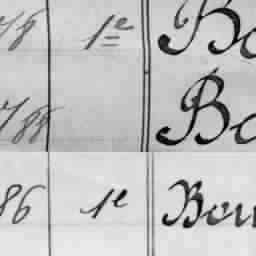 78 1e Bo
788 Bo
86 1e Bou